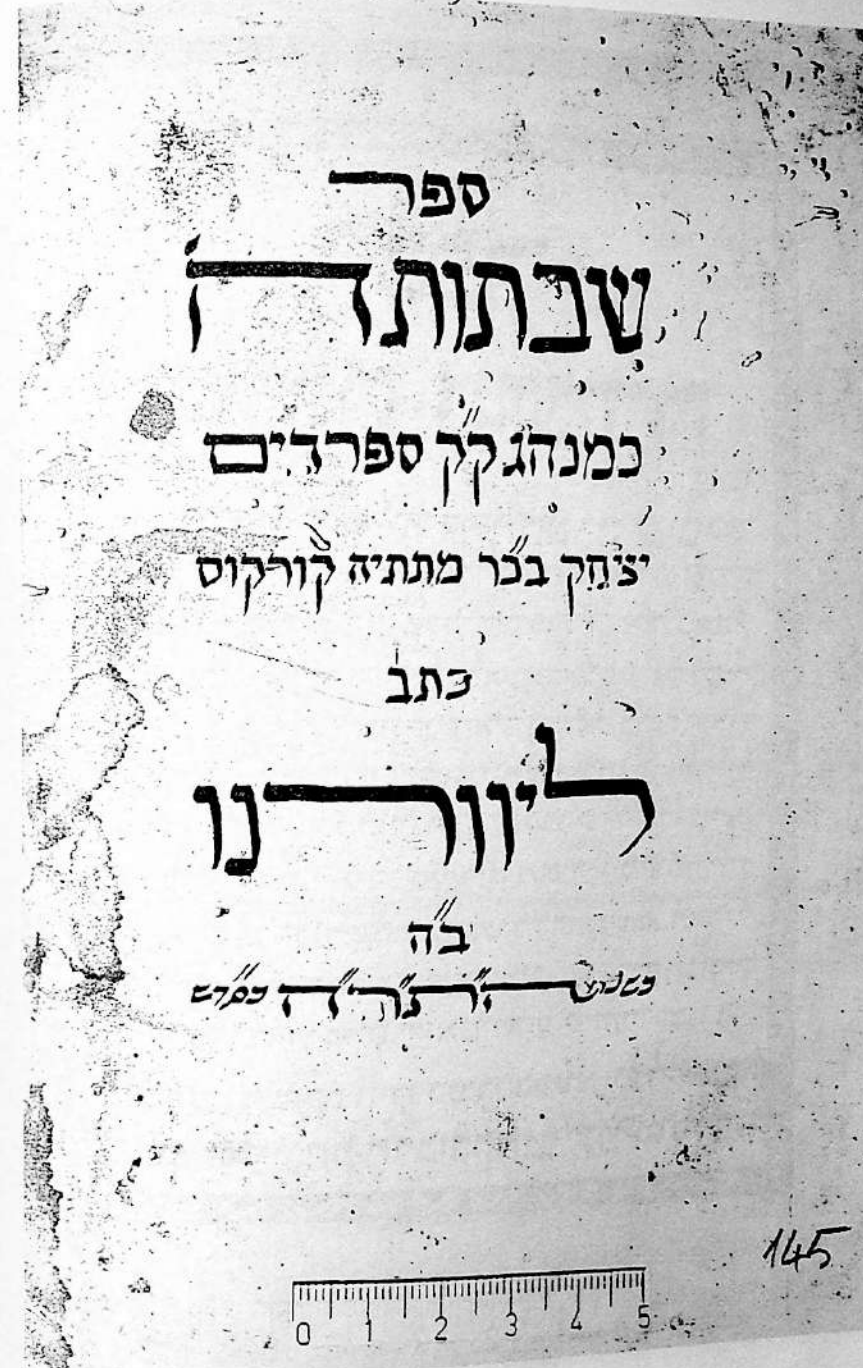 ספר
שבתות ה'
כמנהג ק"ק ספרדים
יצחק בכ"ר מתתיה קורקוס
כתב
ליוורנו
ב"ה
בשנת ה"ת"ר"ה
145
0 1 2 3 4 5